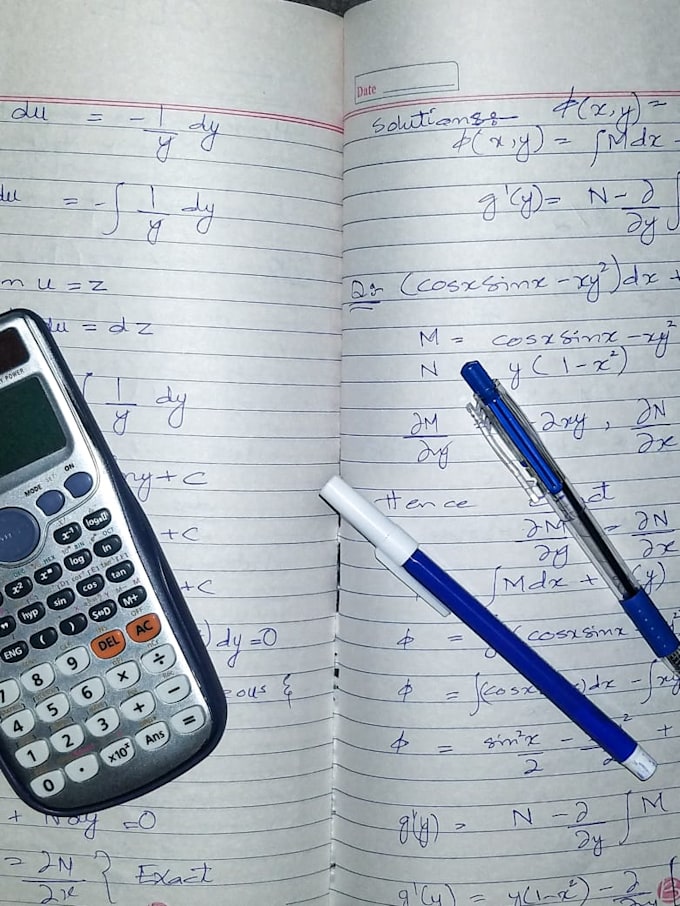 du = - 1/y dy
du = -∫ 1/y dy
u = z
du = dz
∫ 1/y dy
+ c
+ c
+ c
) dy = 0
&
+ Ndy = 0
= ∂N/∂x } Exact
POWER
MODE SET ON
x⁻¹ log
x² log ln
hyp sin cos tan
ENG ( ) S⇔D M+
7 8 9 DEL AC
4 5 6 × ÷
1 2 3 + −
0 . ×10ˣ Ans =
Date
Solutions:- ϕ(x,y) =
ϕ(x,y) = ∫Mdx -
g'(y) = N - ∂/∂y ∫
(cosxsinx - xy²)dx +
M = cosxsinx - xy²
N y(1-x²)
∂M/∂y -2xy, ∂N/∂x
Hence
∂M/∂y = ∂N/∂x
∫Mdx + (y)
ϕ = (cosxsinx
ϕ = ∫(cosx )dx - ∫xy
ϕ = sin²x/2 - 2 +
g'(y) = N - ∂/∂y ∫M
g'(y) = y(1-x²) - ∂